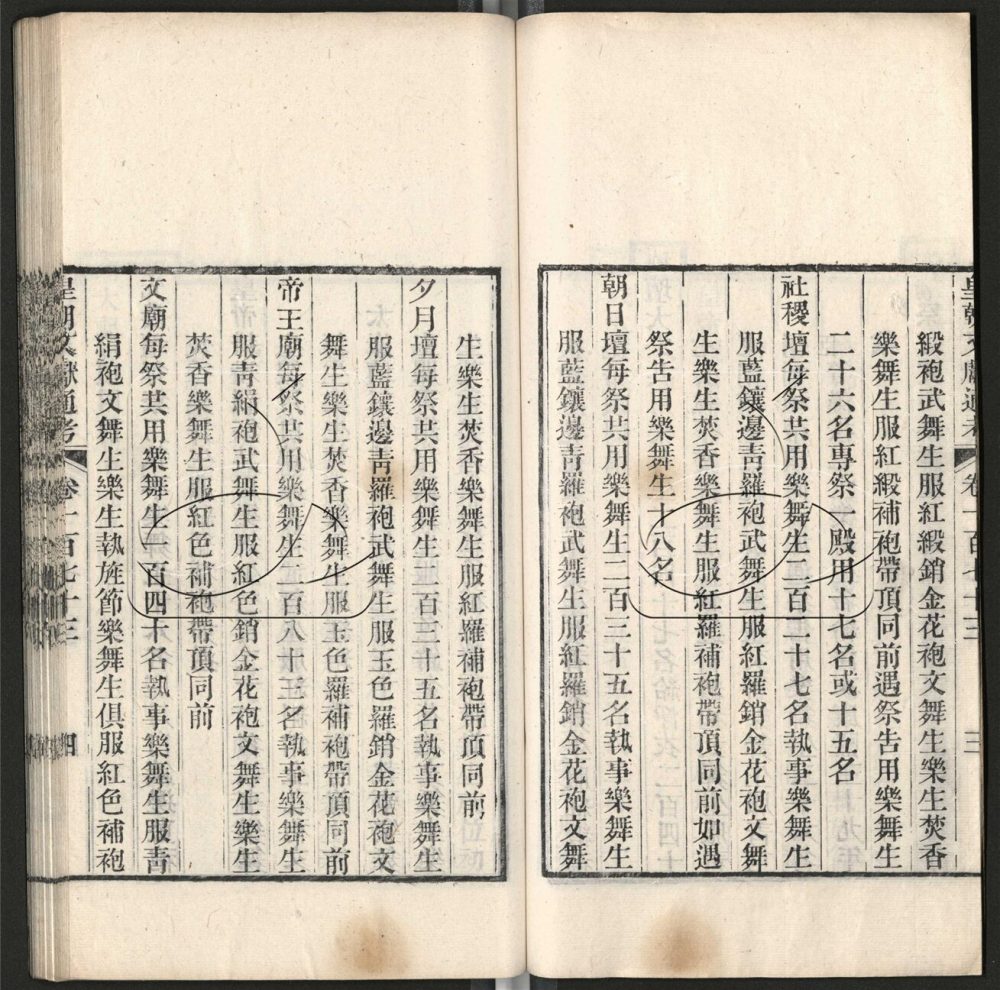 皇朝文獻通考 卷一百七十三 三
緞袍武舞生服紅緞銷金花袍文舞生樂生焚香
樂舞生服紅緞補袍帶頂同前遇祭告用樂舞生
二十六名專祭一殿用十七名或十五名
社稷壇每祭共用樂舞生二百二十七名執事樂舞生
服藍鑲邊青羅袍武舞生服紅羅銷金花袍文舞
生樂生焚香樂舞生服紅羅補袍帶頂同前如遇
祭告用樂舞生十八名
朝日壇每祭共用樂舞生二百三十五名執事樂舞生
服藍鑲邊青羅袍武舞生服紅羅銷金花袍文舞
生樂生焚香樂舞生服紅羅補袍帶頂同前
夕月壇每祭共用樂舞生二百三十五名執事樂舞生
服藍鑲邊青羅袍武舞生服玉色羅銷金花袍文
舞生樂生焚香樂舞生服玉色羅補袍帶頂同前
帝王廟每祭共用樂舞生二百八十三名執事樂舞生
服青絹袍武舞生服紅色銷金花袍文舞生樂生
焚香樂舞生服紅色補袍帶頂同前
文廟每祭共用樂舞生一百四十名執事樂舞生服青
絹袍文舞生樂生執旌節樂舞生俱服紅色補袍
皇朝文獻通考 卷一百七十三 四